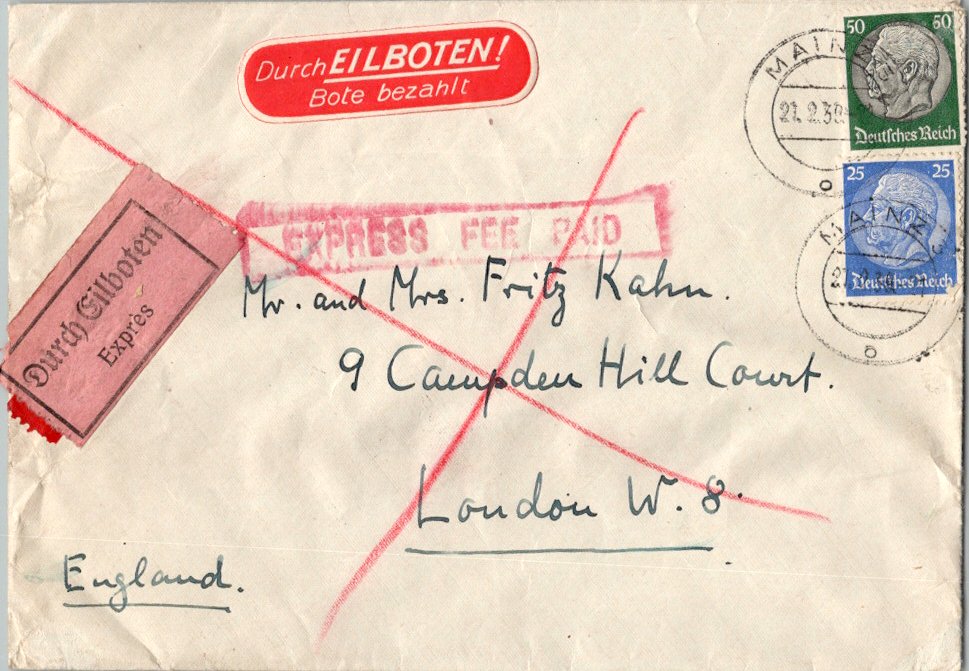 Durch EILBOTEN!
Bote bezahlt
50 50
Deutsches Reich
MAINZ
21.2.39
25 25
Deutsches Reich
MAINZ
Durch Eilboten
Exprès
EXPRESS FEE PAID
Mr. and Mrs. Fritz Kahn.
9 Campden Hill Court.
London W. 8.
England.